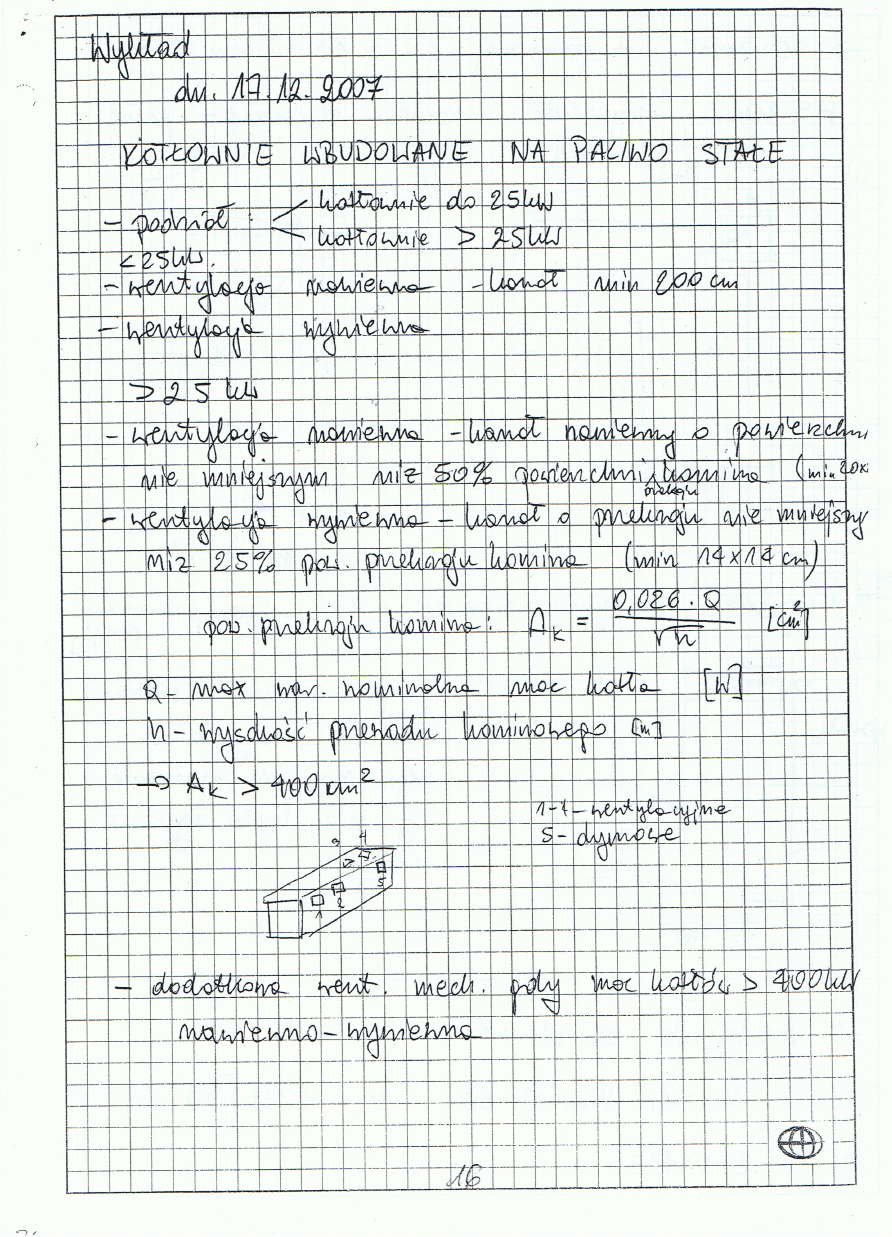 Wykład
dn. 17.12.2007
KOTŁOWNIE WBUDOWANE NA PALIWO STAŁE
- podział : kotłownie do 25kW
kotłownie > 25kW
< 25kW.
- wentylacja nawiewna - kanał min 200 cm
- wentylacja wywiewna
> 25 kW
- wentylacja nawiewna - kanał nawiewny o powierzchni
nie mniejszym niż 50% powierzchni przekroju komina (min 20x
- wentylacja wywiewna - kanał o przekroju nie mniejszy
niż 25% pow. przekroju komina (min 14x14 cm)
pow. przekroju komina: A_k = 0,026 · Q / √h [cm²]
Q - max nom. nominalna moc kotła [W]
h - wysokość przewodu kominowego [m]
→ A_k > 400 cm²
1-4 - wentylacyjne
5 - dymowe
3 4
1 2 5
- dodatkowa went. mech. gdy moc kotłów > 400kW
nawiewno - wywiewna
16